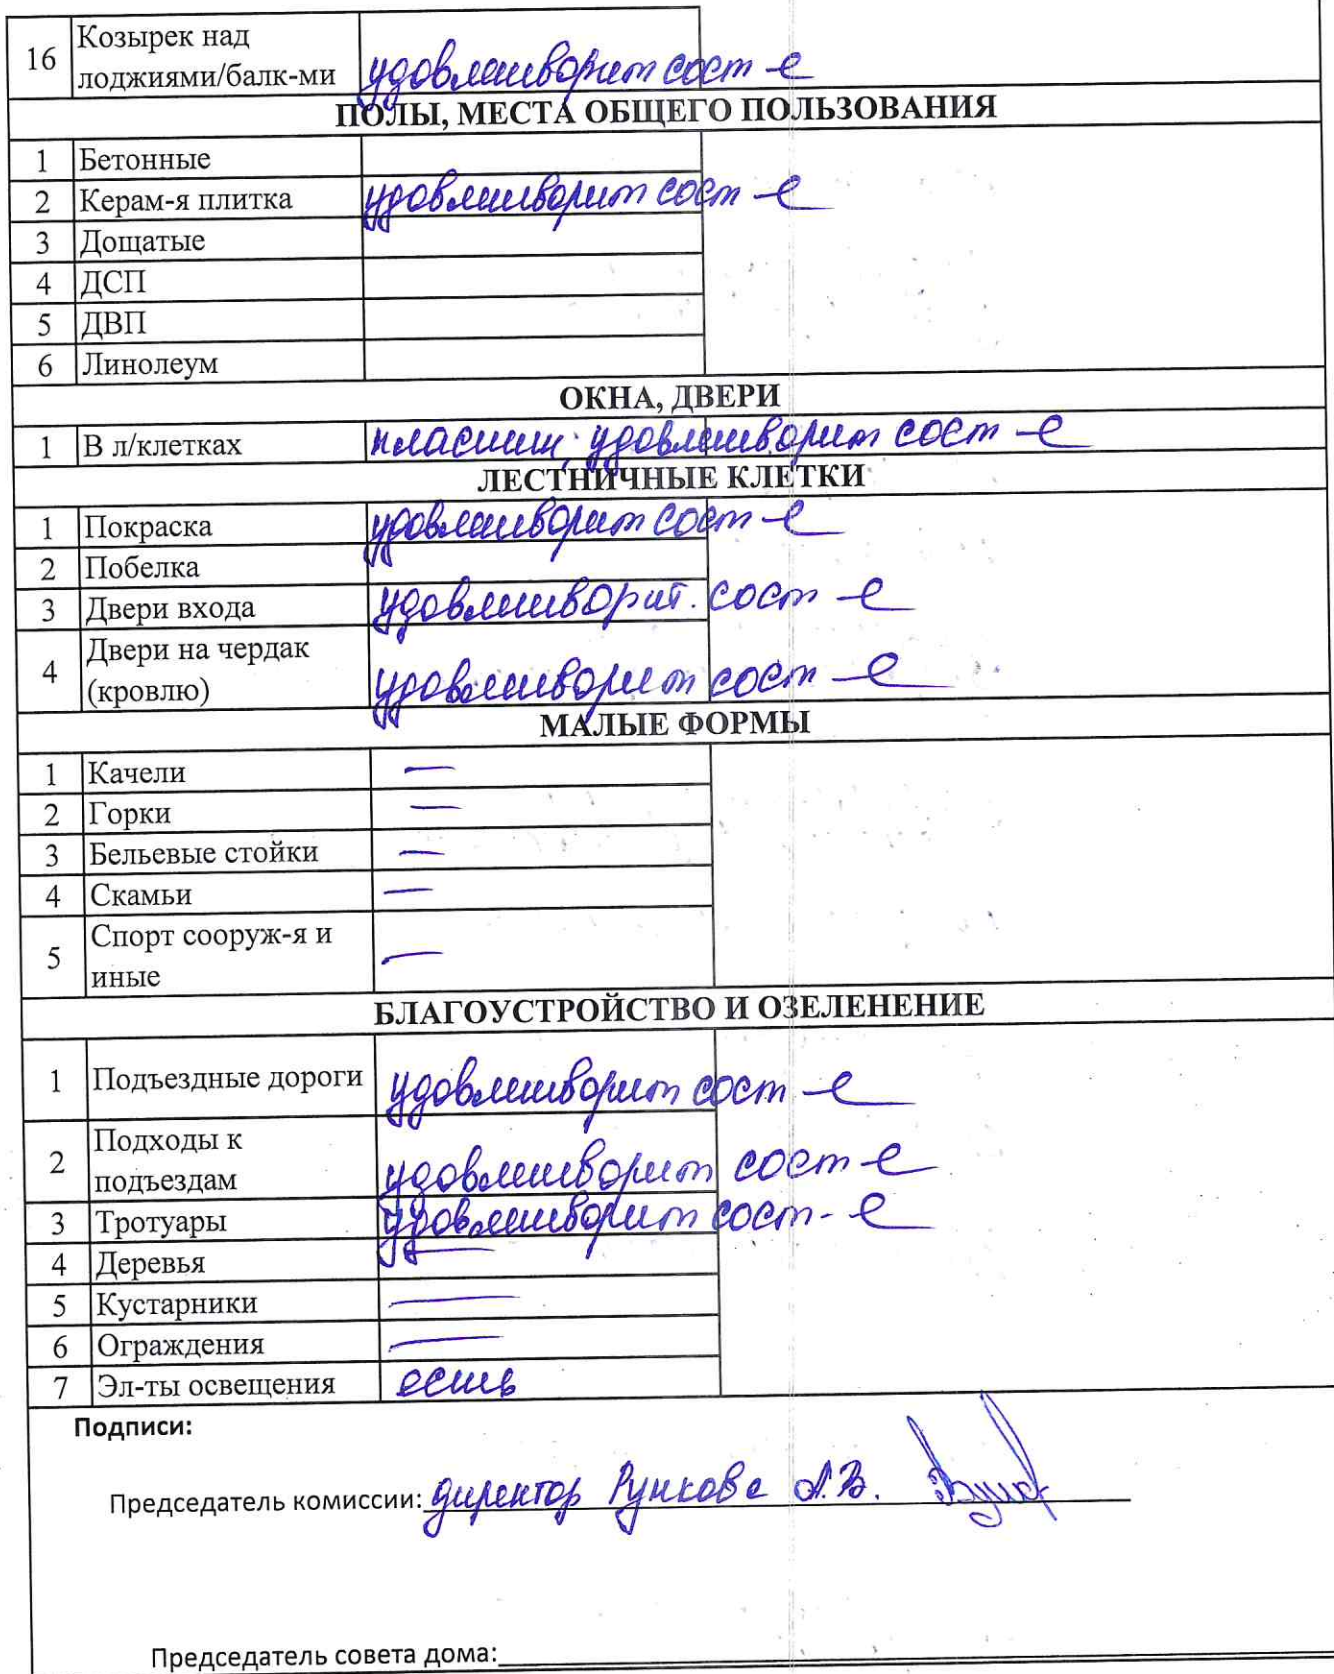 16 Козырек над
лоджиями/балк-ми удовлетворит сост-е
ПОЛЫ, МЕСТА ОБЩЕГО ПОЛЬЗОВАНИЯ
1 Бетонные
2 Керам-я плитка удовлетворит сост-е
3 Дощатые
4 ДСП
5 ДВП
6 Линолеум
ОКНА, ДВЕРИ
1 В л/клетках пластик, удовлетворит сост-е
ЛЕСТНИЧНЫЕ КЛЕТКИ
1 Покраска удовлетворит сост-е
2 Побелка
3 Двери входа удовлетворит. сост-е
4 Двери на чердак
(кровлю) удовлетворит сост-е
МАЛЫЕ ФОРМЫ
1 Качели —
2 Горки —
3 Бельевые стойки —
4 Скамьи —
5 Спорт сооруж-я и
иные —
БЛАГОУСТРОЙСТВО И ОЗЕЛЕНЕНИЕ
1 Подъездные дороги удовлетворит сост-е
2 Подходы к
подъездам удовлетворит сост-е
3 Тротуары удовлетворит сост-е
4 Деревья —
5 Кустарники —
6 Ограждения —
7 Эл-ты освещения есть
Подписи:
Председатель комиссии: директор Рункова А.В.
Председатель совета дома: